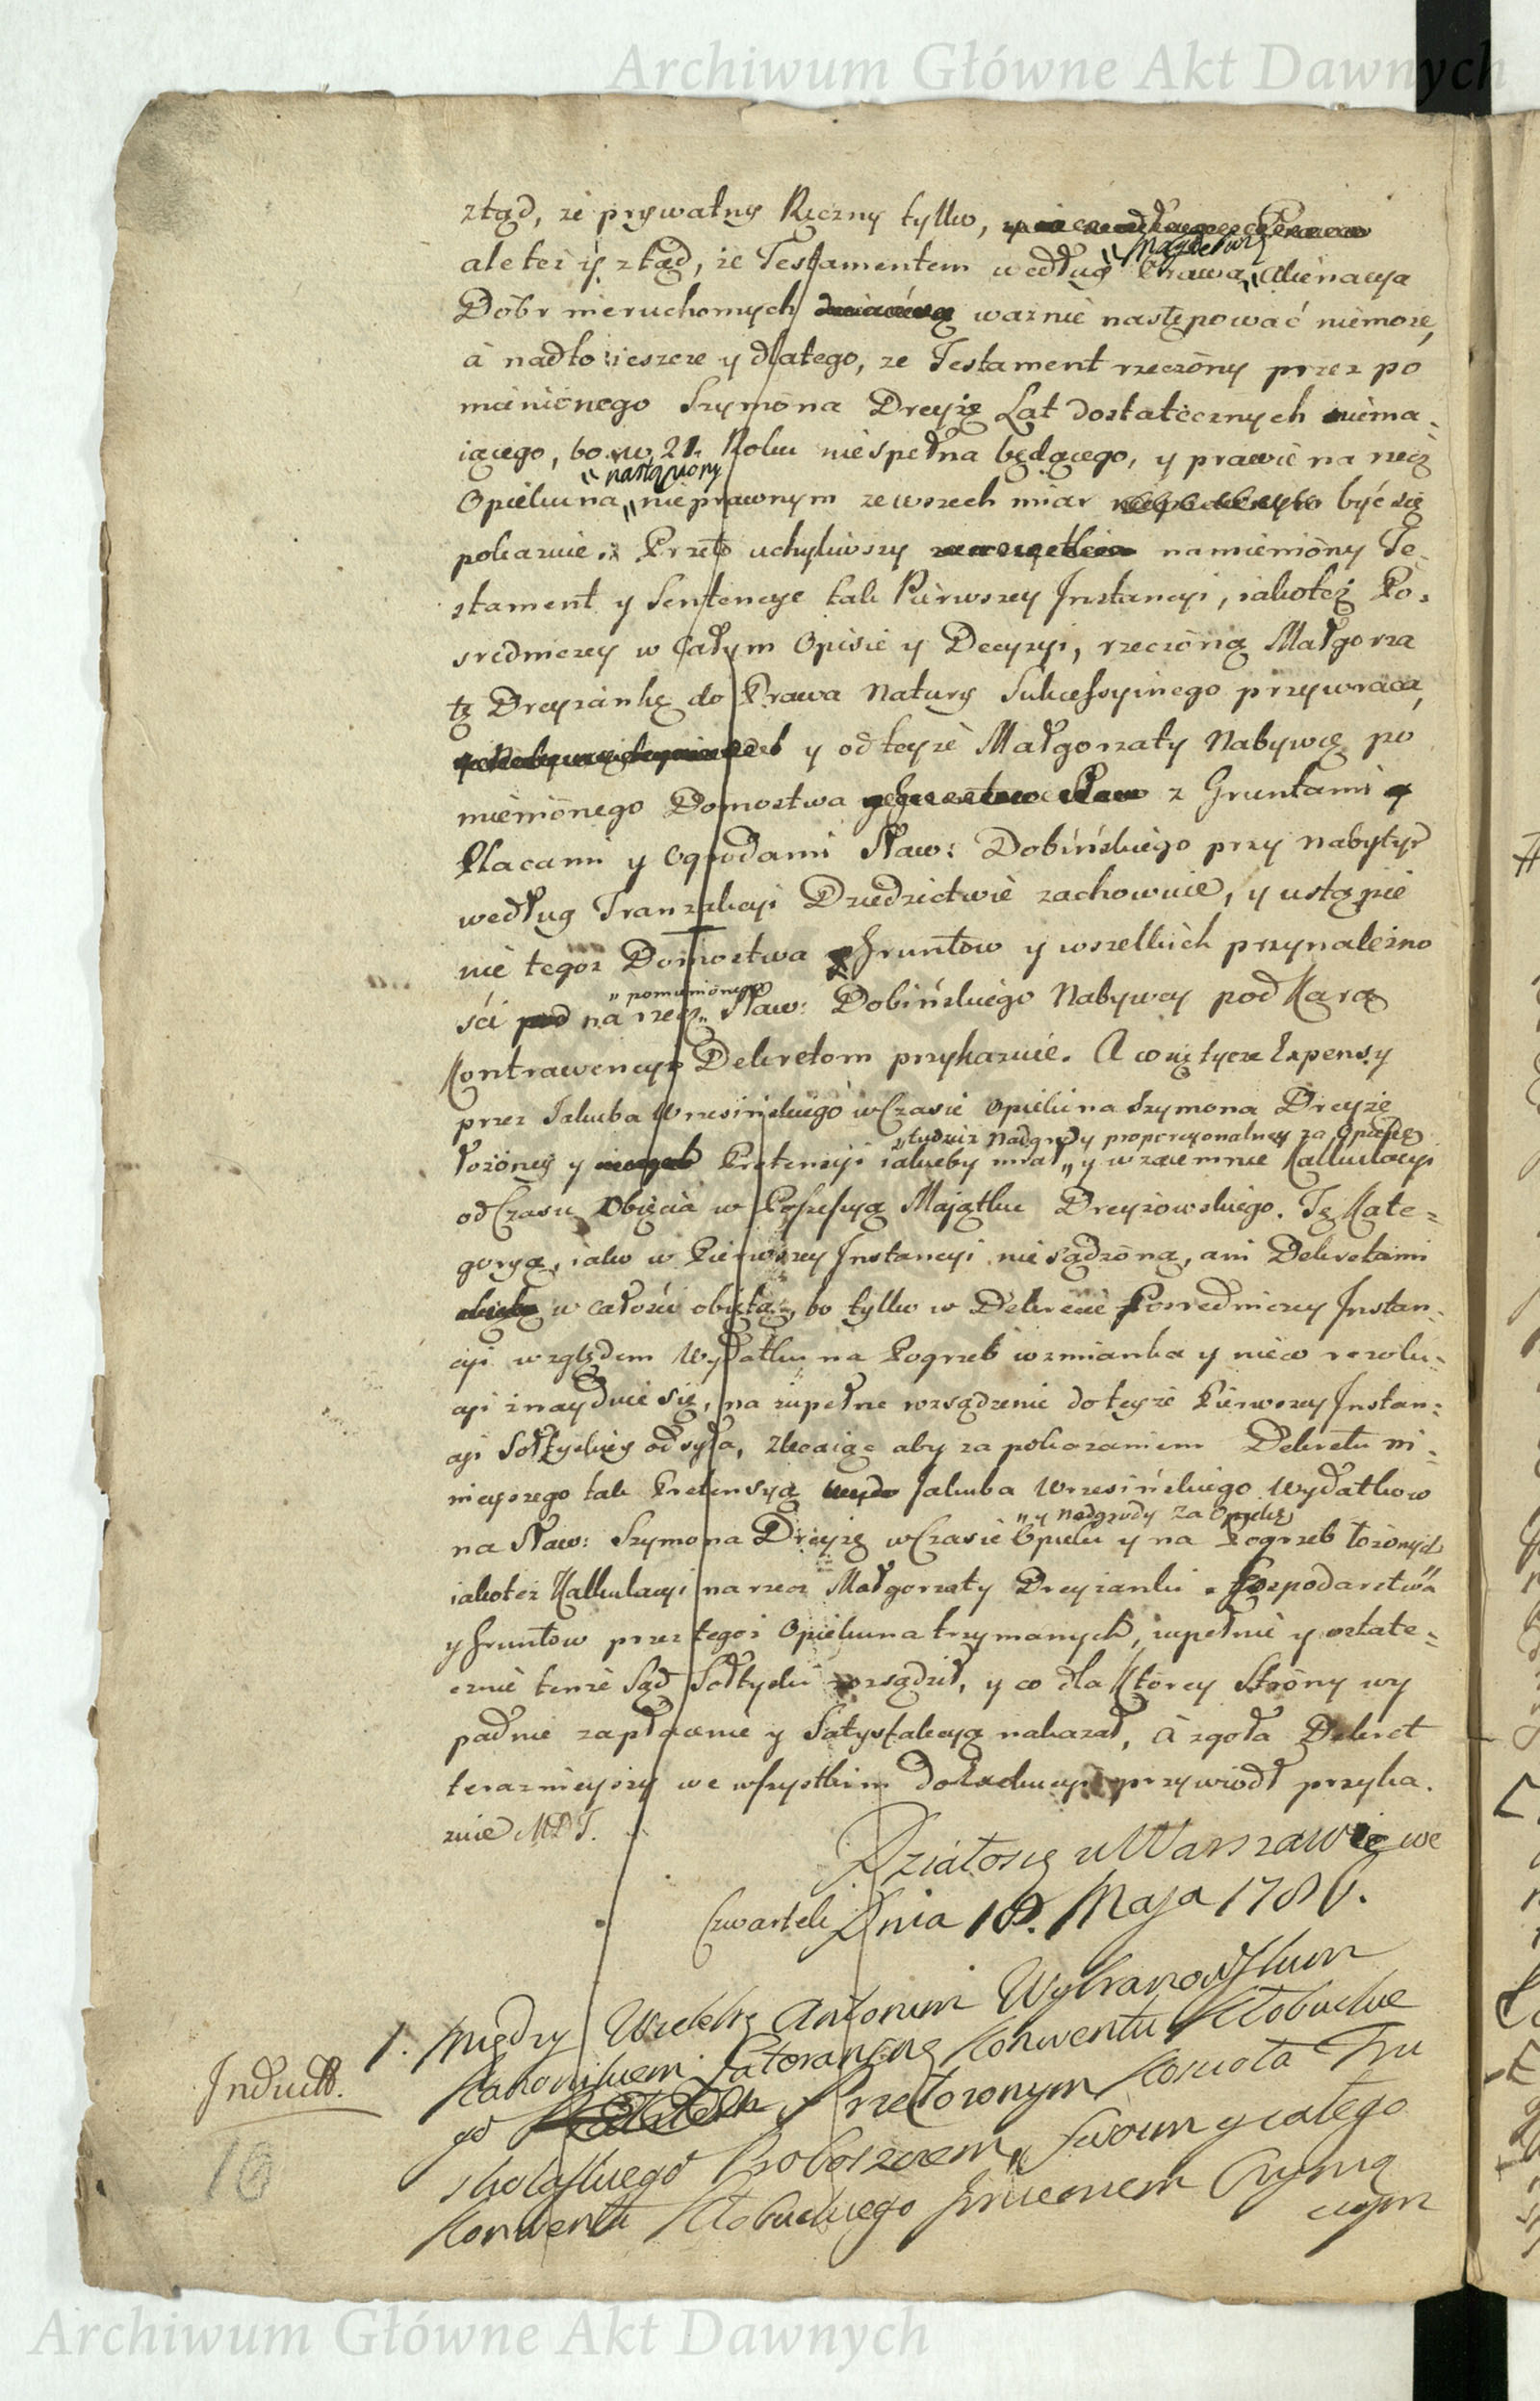 Archiwum Główne Akt Dawnych
ztąd, że prywatny Ręczny tylko,
Magdebur:
ale też y ztąd, że Testamentem według Prawa Alienacya
Dóbr nieruchomych ważnie następować niemoże,
à nadto ieszcze y dlatego, że Testament rzeczóny przez po
mieniónego Szymóna Dreyżę Lat dostatecznych niema-
iącego, bo w 21. Roku niespełna będącego, y prawie na rzecz
nastąpiony
Opiekuna nieprawnym ze wszech miar być się
pokazuie. Przeto uchyliwszy namienióny Te-
stament y Sentencye tak Pierwszey Instancyi, iakoteż Po-
średniczey w całym Opisie y Decyzyi, rzeczóną Małgorza
tę Dreyżankę do Prawa Natury Sukcessyinego przywraca,
y od teyże Małgorzaty Nabywcę po
mieniónego Domostwa z Gruntami
Placami y Ogrodami Sław: Dobińskiego przy nabytym
według Tranzakcyi Dziedzictwie zachowuie, y ustąpie
nie tegoż Domostwa Gruntow y wszelkich przynależno
pomieniónego
ści na rzecz Sław: Dobińskiego Nabywcy pod Karą
Kontrawencyi Dekretom przykazuie. A co się tycze Expensy
przez Jakuba Wrzesińskiego w Czasie Opiekina Szymona Dreyżę
tudzież Nadgrody proporcyonalney za Opiekę
łożóney y Pretensyi iakieby miał y wzaiemnie Kalkulacyi
od Czasu Obięcia w Possessyą Maiątku Dreyżowskiego. Tę Kate-
goryą, iako w Pierwszey Instancyi nie sądzóną, ani Dekretami
w całości obiętą, bo tylko w Dekrecie Pośredniczey Instan-
cyi względem Wydatku na Pogrzeb wzmianka y nieco rezolu-
cyi znayduie się, na zupełne rozsądzenie do teyże Pierwszey Instan-
cyi Sołtyskiey odsyła, Zlecaiąc aby za pokazaniem Dekretu ni-
nieyszego tak Pretensyą Jakuba Wrzesińskiego Wydatkow
y Nadgrody za Opiekę
na Sław: Szymona Dreyżę w Czasie Opieki y na Pogrzeb łożonych
iakoteż Kalkulacyi na rzecz Małgorzaty Dreyżanki z Gospodarstwa
y Gruntow przez tegoż Opiekuna trzymanych, zupełnie y ostate-
cznie tenże Sąd Sołtyski rozsądził, y co dla Którey Stróny wy
padnie zapłacenie y Satysfakcyą nakazał, à zgoła Dekret
teraznieyszy we wszystkim do Exekucyi przywiódł przyka.
zuie MDT.
Działo się w Warszawie we
Czwartek Dnia 18. Maja 1786.
Indukt.
1. Między Wielebę Antonim Wybranowskim
Kanonikiem Lateraneńs Konwentu Kłobucku
go Przełożonym Kościoła Tru
skolaskiego Proboszczem, swoim y całego
Konwentu Kłobuckiego Imieniem Czynią
cym
16
Archiwum Główne Akt Dawnych